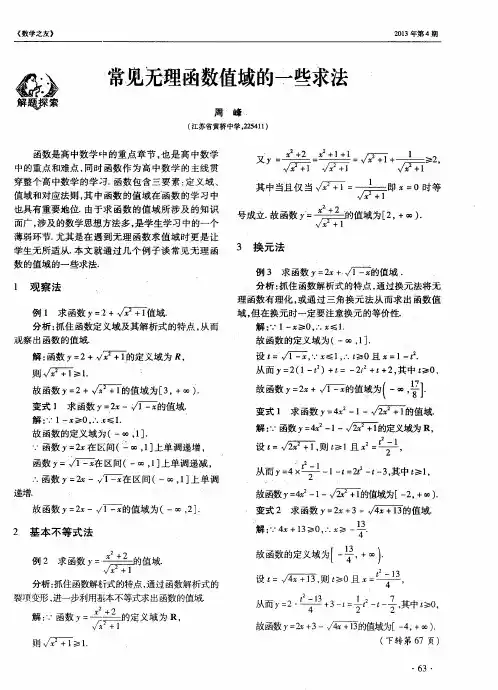 《数学之友》
2013 年第 4 期
解题探索
常见无理函数值域的一些求法
周 峰
(江苏省黄桥中学,225411)
函数是高中数学中的重点章节,也是高中数学
中的重点和难点,同时函数作为高中数学的主线贯
穿整个高中数学的学习. 函数包含三要素:定义域、
值域和对应法则,其中函数的值域在函数的学习中
也具有重要地位. 由于求函数的值域所涉及的知识
面广,涉及的数学思想方法多,是学生学习中的一个
薄弱环节. 尤其是在遇到无理函数求值域时更是让
学生无所适从. 本文就通过几个例子谈常见无理函
数的值域的一些求法.
1 观察法
例 1 求函数 y = 2 + √(x²+1)值域.
分析:抓住函数定义域及其解析式的特点,从而
观察出函数的值域.
解:函数 y = 2 + √(x²+1)的定义域为 R,
则√(x²+1)≥1.
故函数 y = 2 + √(x²+1)的值域为[3, + ∞).
变式 1 求函数 y=2x - √(1-x)的值域.
解:∵ 1 - x≥0,∴ x≤1.
故函数的定义域为( - ∞ ,1].
∵ 函数 y=2x 在区间( - ∞ ,1]上单调递增,
函数 y = √(1-x)在区间( - ∞ ,1]上单调递减,
∴ 函数 y=2x - √(1-x)在区间( - ∞ ,1]上单调
递增.
故函数 y=2x - √(1-x)的值域为( - ∞ ,2].
2 基本不等式法
例 2 求函数 y = (x²+2)/√(x²+1)的值域.
分析:抓住函数解析式的特点,通过函数解析式的
裂项变形,进一步利用基本不等式求出函数的值域.
解:∵ 函数 y = (x²+2)/√(x²+1)的定义域为 R,
则√(x²+1)≥1.
又 y = (x²+2)/√(x²+1) = (x²+1+1)/√(x²+1) = √(x²+1) + 1/√(x²+1)≥2,
其中当且仅当√(x²+1) = 1/√(x²+1)即 x = 0 时等
号成立. 故函数 y = (x²+2)/√(x²+1)的值域为[2, + ∞).
3 换元法
例 3 求函数 y =2x + √(1-x)的值域 .
分析:抓住函数解析式的特点,通过换元法将无
理函数有理化,或通过三角换元法从而求出函数值
域,但在换元时一定要注意换元的等价性.
解:∵ 1 - x≥0,∴ x≤1.
故函数的定义域为( - ∞ ,1].
设 t = √(1-x),∵ x≤1,∴ t≥0 且 x = 1 - t².
从而 y =2(1 - t²) + t = - 2t² + t + 2,其中 t≥0,
故函数 y=2x + √(1-x)的值域为( - ∞ , 17/8].
变式 1 求函数 y=4x² - 1 - √(2x²+1)的值域.
解:∵ 函数 y =4x² - 1 - √(2x²+1)的定义域为 R,
设 t = √(2x²+1),则 t≥1 且 x² = (t²-1)/2,
从而 y =4 × (t²-1)/2 - 1 - t=2t² - t - 3,其中 t≥1,
故函数 y=4x² - 1 - √(2x²+1)的值域为[ -2, + ∞).
变式 2 求函数 y=2x + 3 - √(4x+13)的值域.
解:∵ 4x + 13≥0,∴ x≥ - 13/4.
故函数的定义域为[ - 13/4, + ∞).
设 t = √(4x+13),则 t≥0 且 x = (t²-13)/4,
从而 y=2 · (t²-13)/4 + 3 - t = 1/2 t² - t - 7/2,其中 t≥0,
故函数 y =2x + 3 - √(4x+13)的值域为[ -4, + ∞).
(下转第 67 页)
· 63 ·